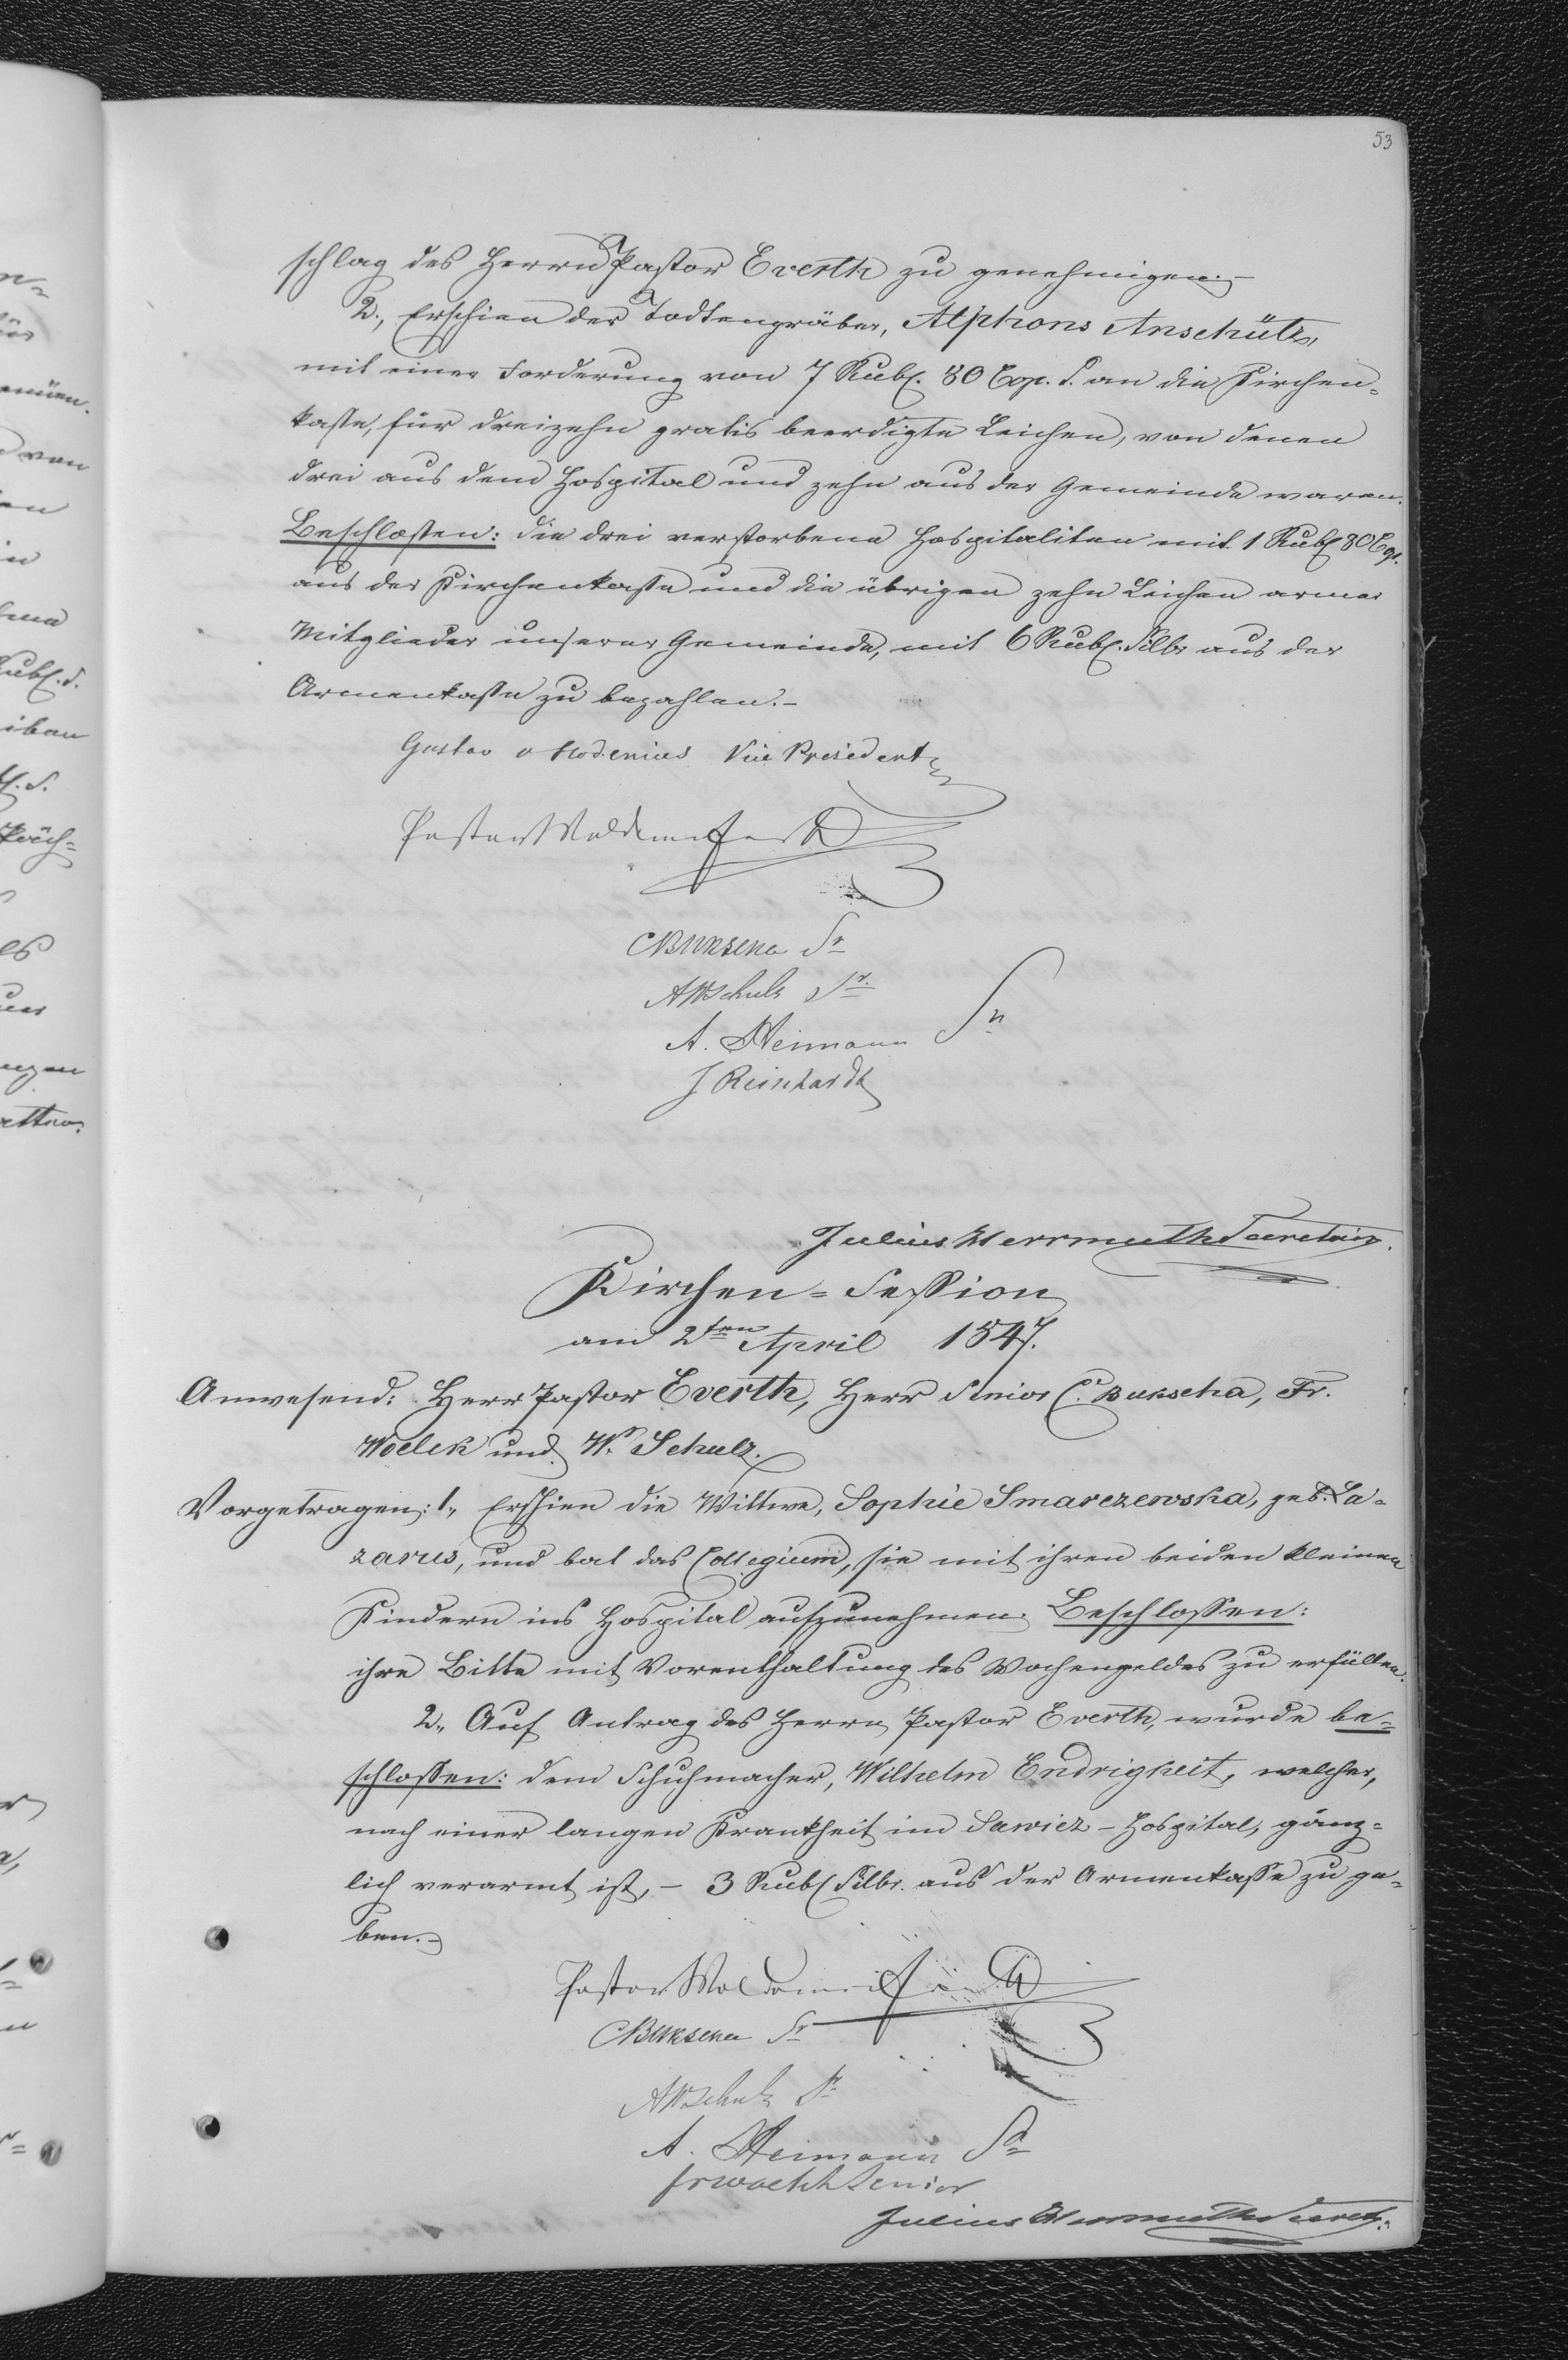 53
schlag des Herrn Pastor Everth zu genehmigen.-
2., Erschien der Todtengräber, Alphons Anschütz,
mit einer Forderung von 7 Rubl. 80 Cop. S. an die Kirchen-
kasse, für dreizehn gratis beerdigte Leichen, von denen
drei aus dem Hospital und zehn aus der Gemeinde waren.
Beschlossen: die drei verstorbene Hospitaliten mit 1 Rubl 80 Cop.
aus der Kirchenkasse und die übrigen zehn Leichen armer
Mitglieder unserer Gemeinde, mit 6 Rubl. Silbr aus der
Armenkasse zu bezahlen.-
Gustav Vice President
Pastor Woldemar Everth
CBukscha Sr
AWSchulz Sr.
A. Heimann Sr
J Reinhardt
Julius Herrmuth Secretair.
Kirchen-Session
am 2ten April 1847.
Anwesend: Herr Pastor Everth, Herr Senior C. Bukscha, Fr.
Woelck und W. Schulz.
Vorgetragen: 1., Erschien die Wittwe, Sophie Smarczewska, geb. La-
zarus, und bat das Collegium, sie mit ihren beiden kleinen
Kindern ins Hospital aufzunehmen. Beschlossen:
ihre Bitte mit Vorenthaltung des Wochengeldes zu erfüllen.
2., Auf Antrag des Herrn Pastor Everth, wurde be-
schlossen: dem Schuhmacher, Wilhelm Endrigkeit, welcher,
nach einer langen Krankheit im Sawicz-Hospital, gänz-
lich verarmt ist, - 3 Rubl Silbr. aus der Armenkasse zu ge-
ben.-
Pastor Woldemar Everth
CBukscha Sr
AWSchulz Sr
A. Heimann Sr
Fr Woelck Senior
Julius Herrmuth Secret.